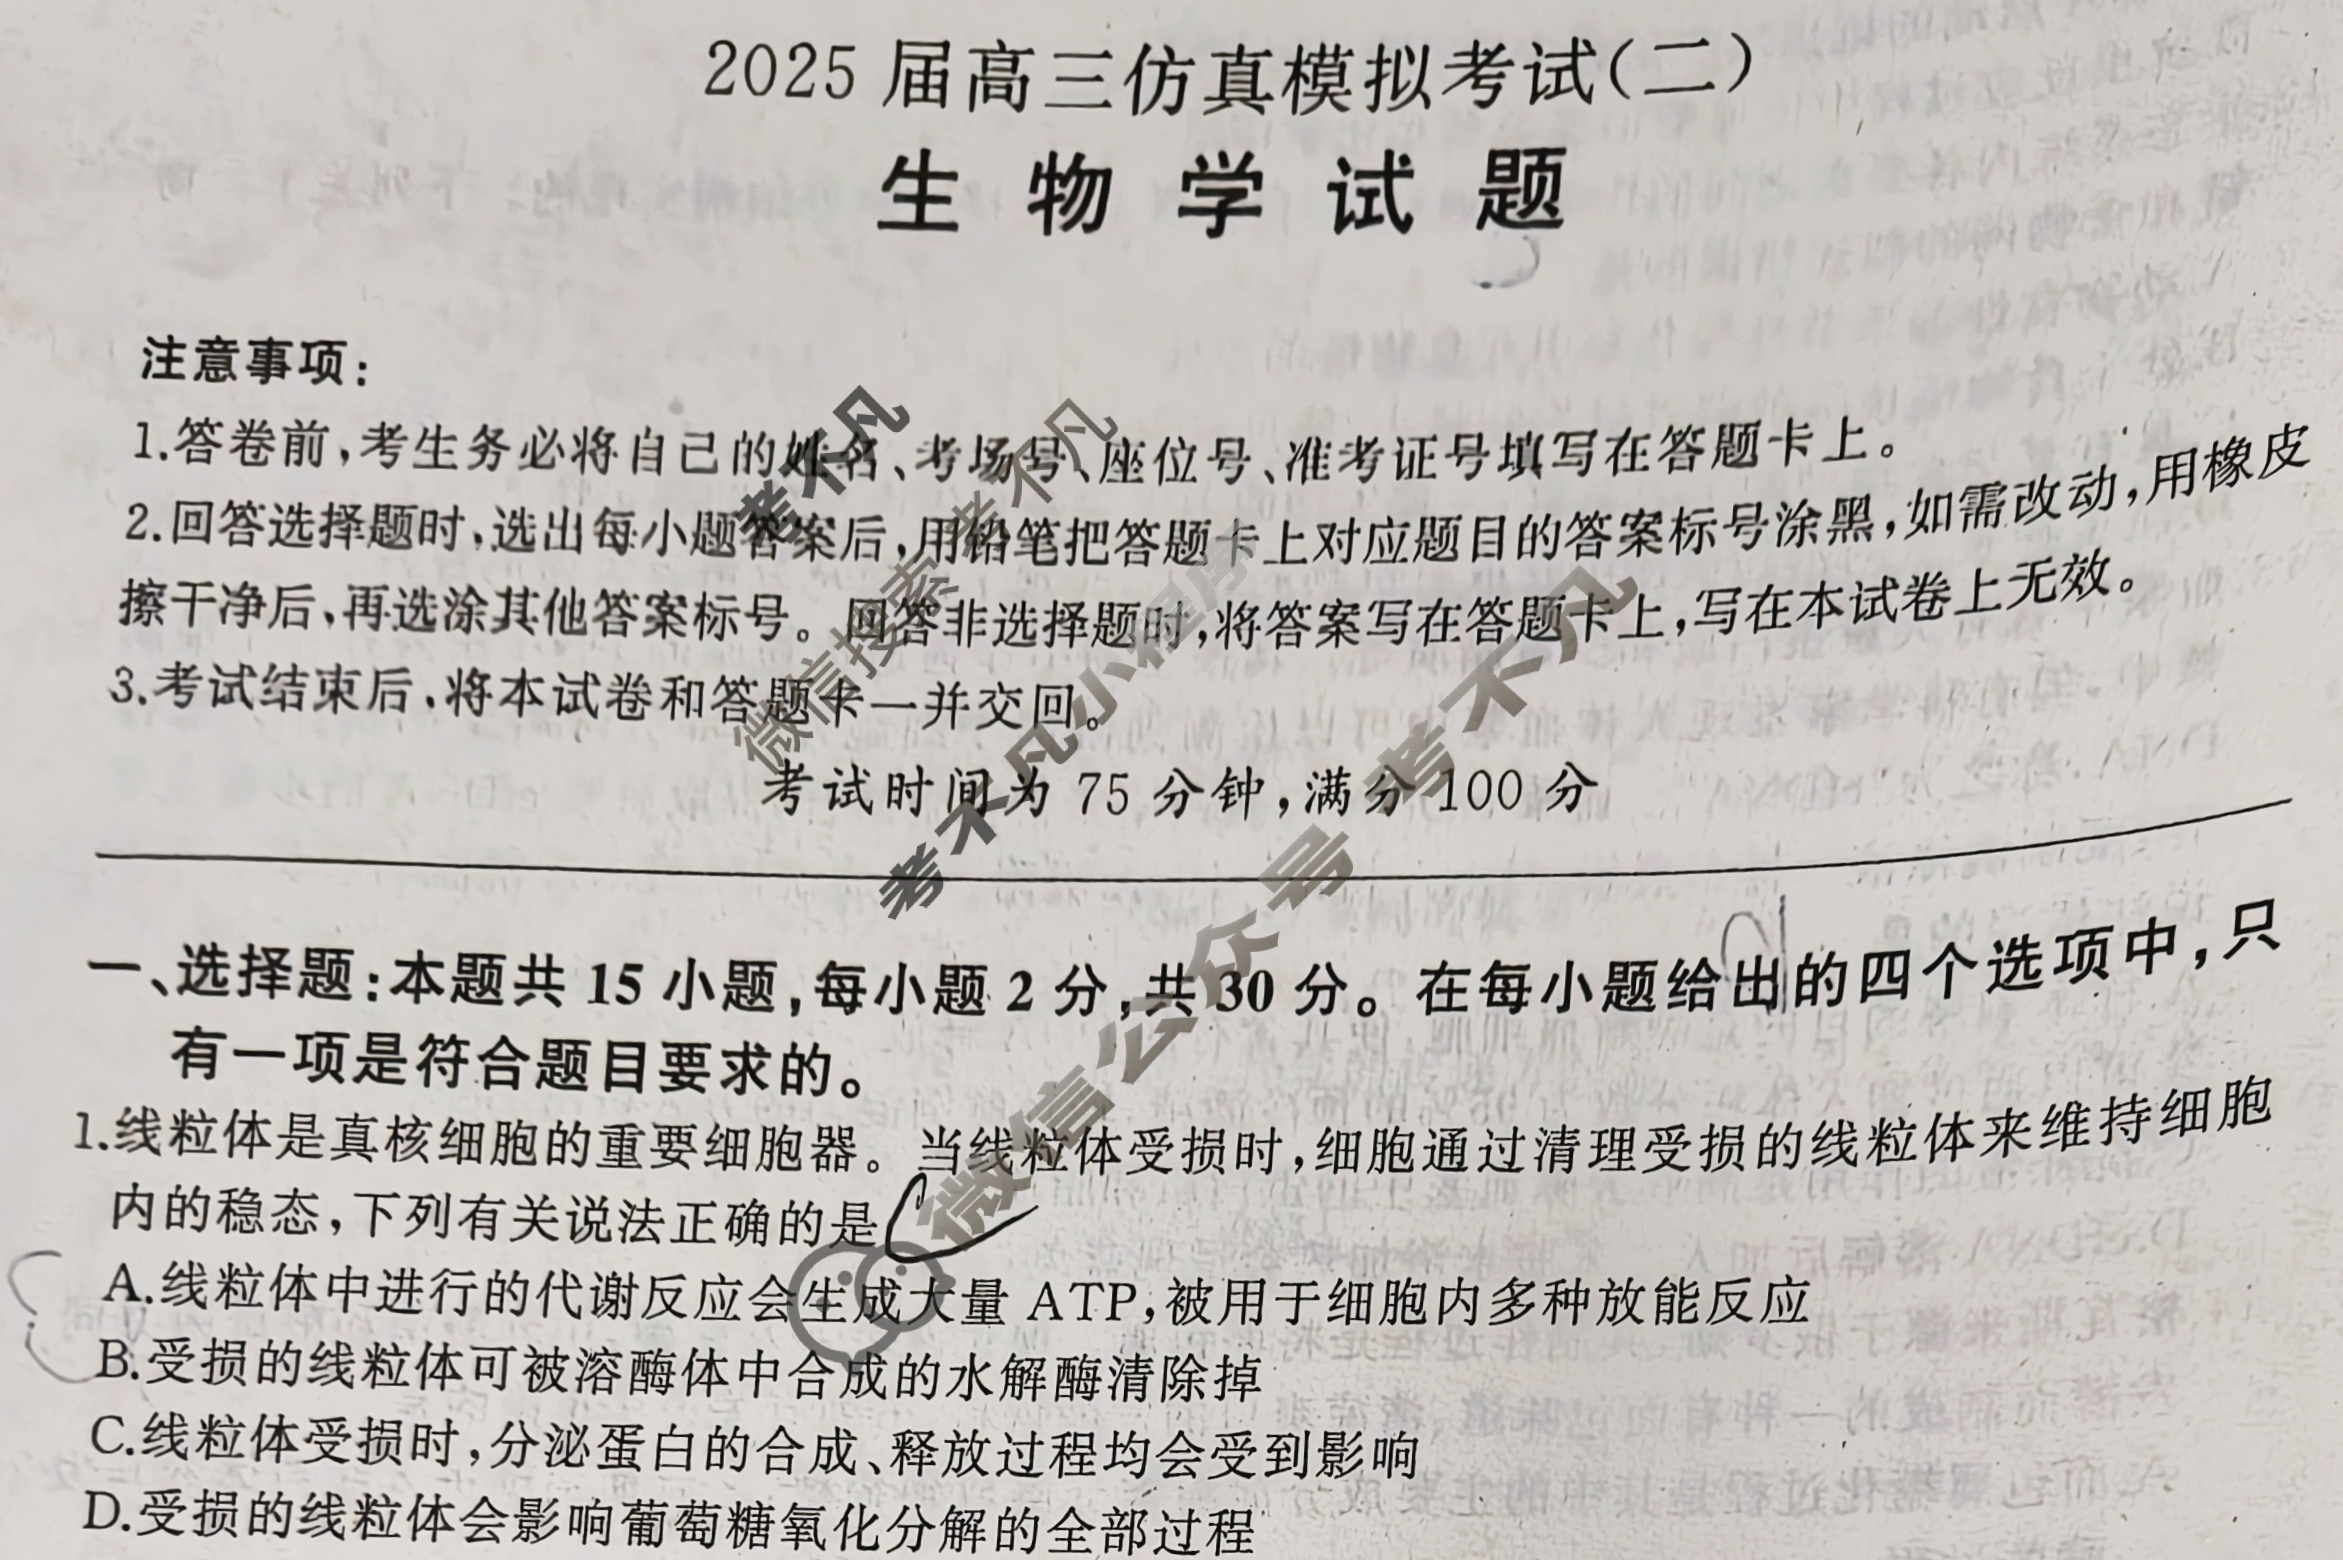 2025 届高三仿真模拟考试(二)
生物学试题
注意事项:
1.答卷前,考生务必将自己的姓名、考场号、座位号、准考证号填写在答题卡上。
2.回答选择题时,选出每小题答案后,用铅笔把答题卡上对应题目的答案标号涂黑,如需改动,用橡皮
擦干净后,再选涂其他答案标号。回答非选择题时,将答案写在答题卡上,写在本试卷上无效。
3.考试结束后,将本试卷和答题卡一并交回。
考试时间为 75 分钟,满分 100 分
一、选择题:本题共 15 小题,每小题 2 分,共 30 分。在每小题给出的四个选项中,只
有一项是符合题目要求的。
1.线粒体是真核细胞的重要细胞器。当线粒体受损时,细胞通过清理受损的线粒体来维持细胞
内的稳态,下列有关说法正确的是
A.线粒体中进行的代谢反应会生成大量 ATP,被用于细胞内多种放能反应
B.受损的线粒体可被溶酶体中合成的水解酶清除掉
C.线粒体受损时,分泌蛋白的合成、释放过程均会受到影响
D.受损的线粒体会影响葡萄糖氧化分解的全部过程
考不凡
微信搜索 考不凡
考不凡小程序
微信公众号 考不凡